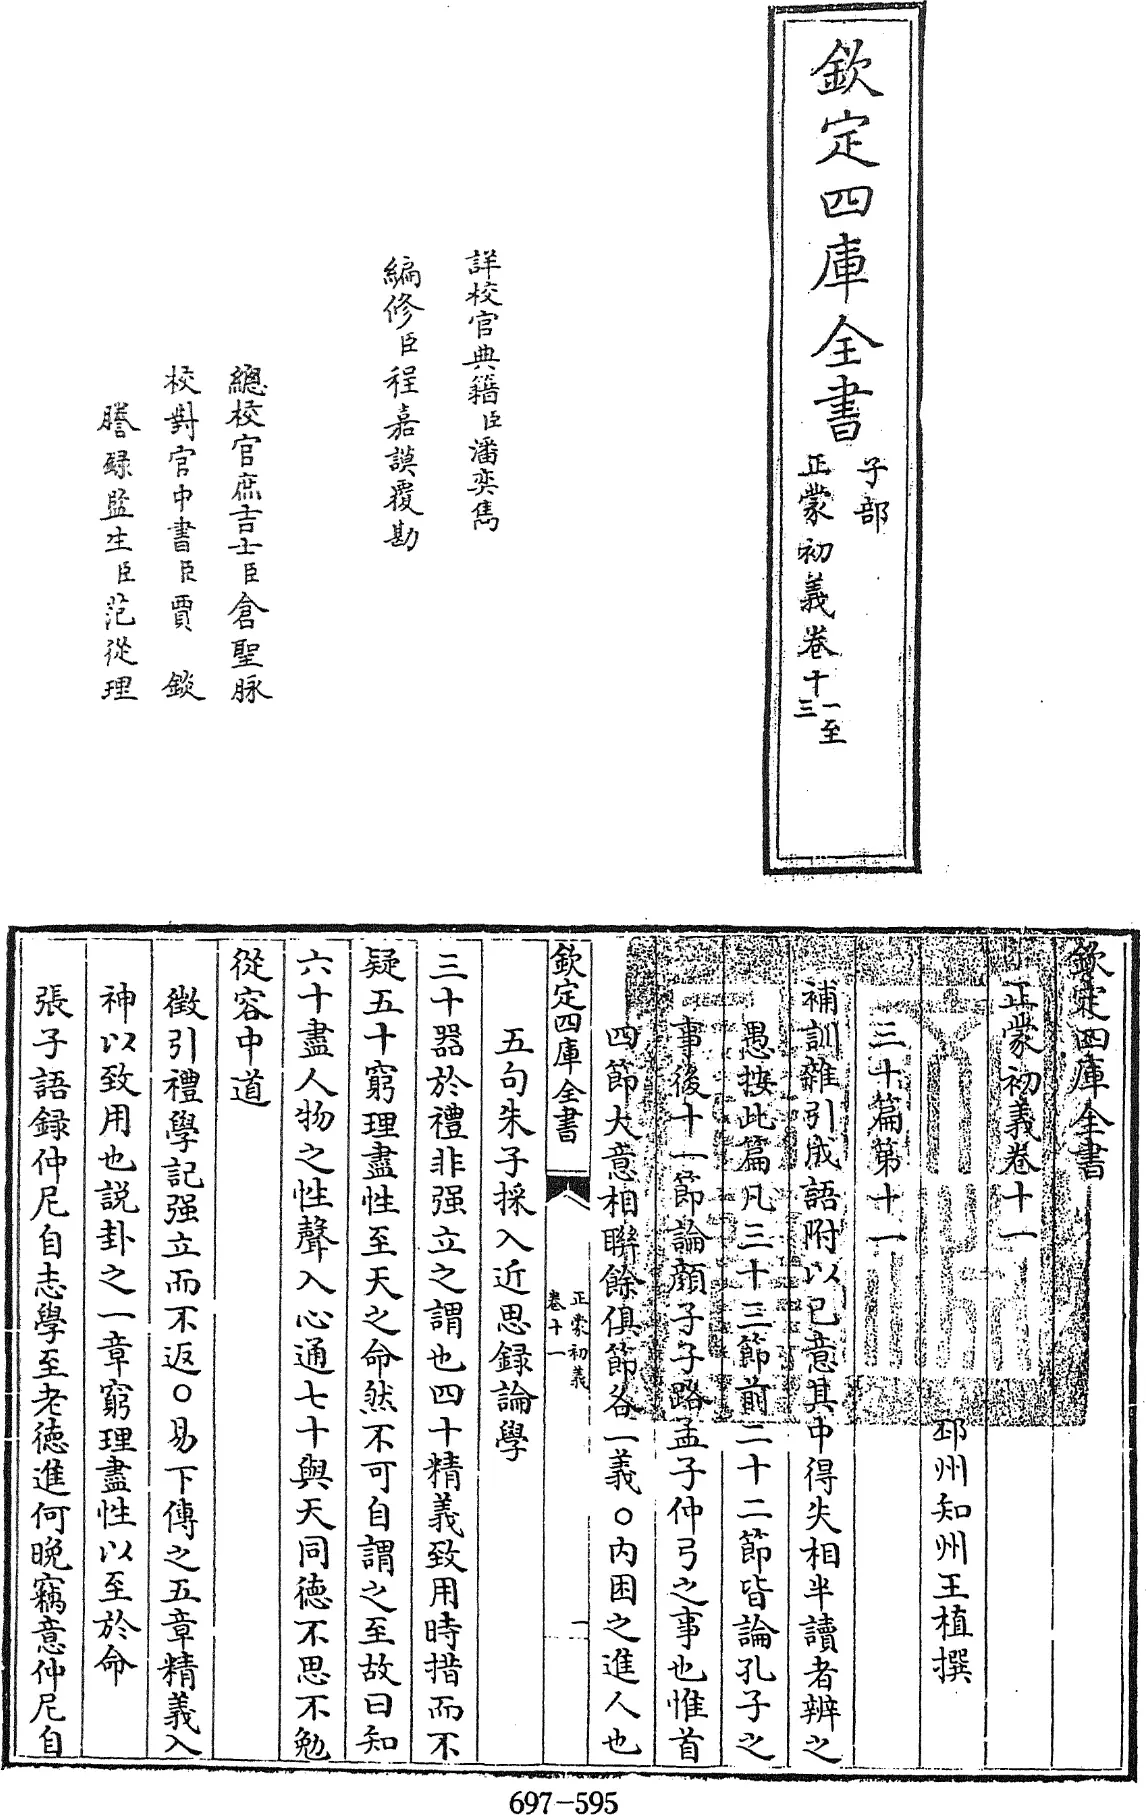 欽定四庫全書
子部
正蒙初義卷十一至十三
詳校官典籍臣潘奕雋
編修臣程嘉謨覆勘
總校官庶吉士臣倉聖脉
校對官中書臣賈 錟
謄録監生臣范從理
欽定四庫全書
正蒙初義卷十一
邳州知州王植撰
三十篇第十一
補訓雜引成語附以己意其中得失相半讀者辨之
愚按此篇凡三十三節前二十二節皆論孔子之
事後十一節論顔子子路孟子仲弓之事也惟首
四節大意相聯餘俱節各一義○内困之進人也
欽定四庫全書
正蒙初義
卷十一
一
五句朱子採入近思録論學
三十器於禮非强立之謂也四十精義致用時措而不
疑五十窮理盡性至天之命然不可自謂之至故曰知
六十盡人物之性聲入心通七十與天同德不思不勉
從容中道
徵引禮學記强立而不返○易下傳之五章精義入
神以致用也説卦之一章窮理盡性以至於命
張子語録仲尼自志學至老德進何晚竊意仲尼自
697-595